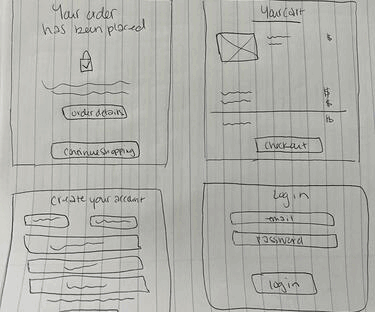 Your order
has been placed
order details
continue shopping
Your cart
$
$
$
checkout
create your account
Log in
email
password
login